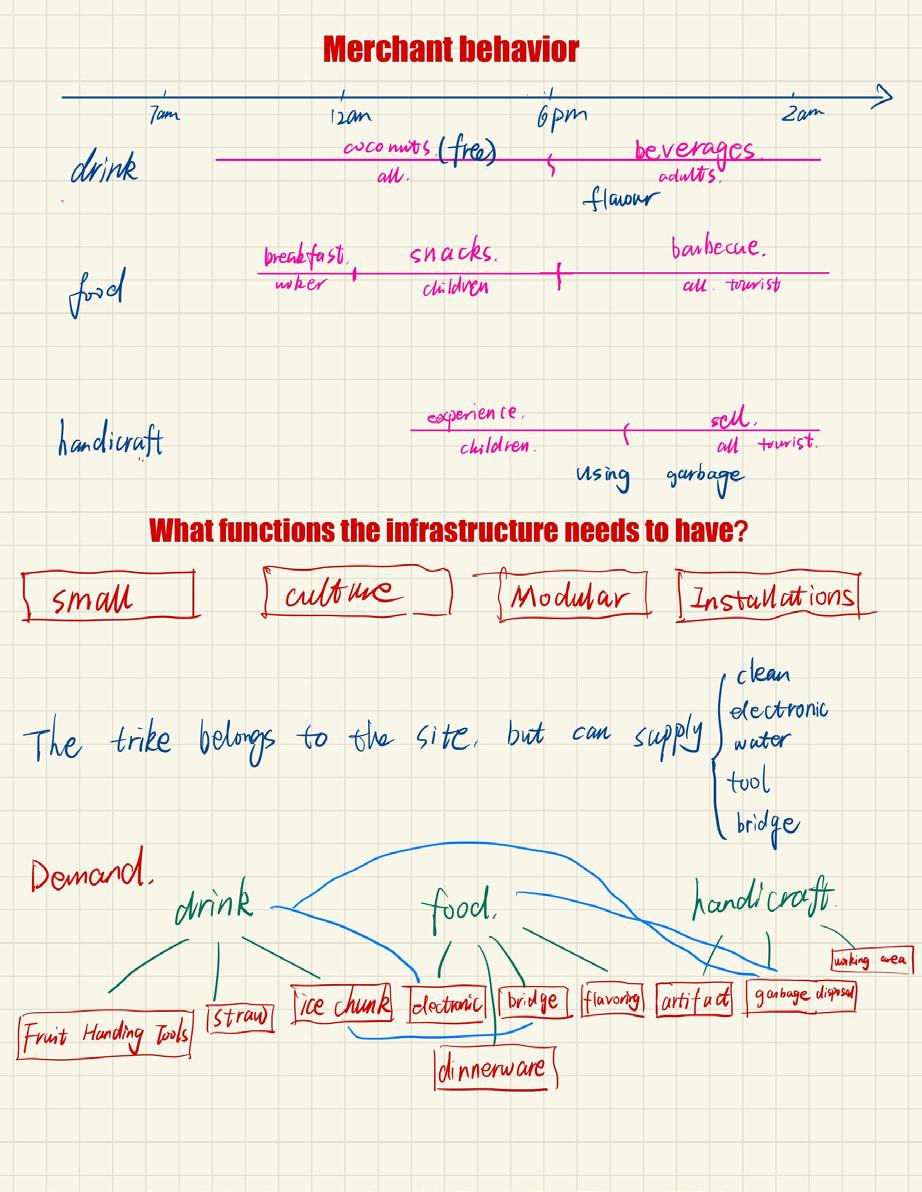 Merchant behavior
7am 12am 6pm 2am
coconuts. (free) beverages.
drink
all. adults.
flavour
breakfast. snacks. barbecue.
food
woker children all tourist
experience. sell.
handicraft
children. all tourist.
using garbage
What functions the infrastructure needs to have?
small culture Modular Installations
clean
electronic
The trike belongs to the site, but can supply
water
tool
bridge
Demand.
drink food. handicraft.
working area
Fruit Handing Tools straw ice chunk electronic bridge flavoring artifact garbage disposal
dinnerware